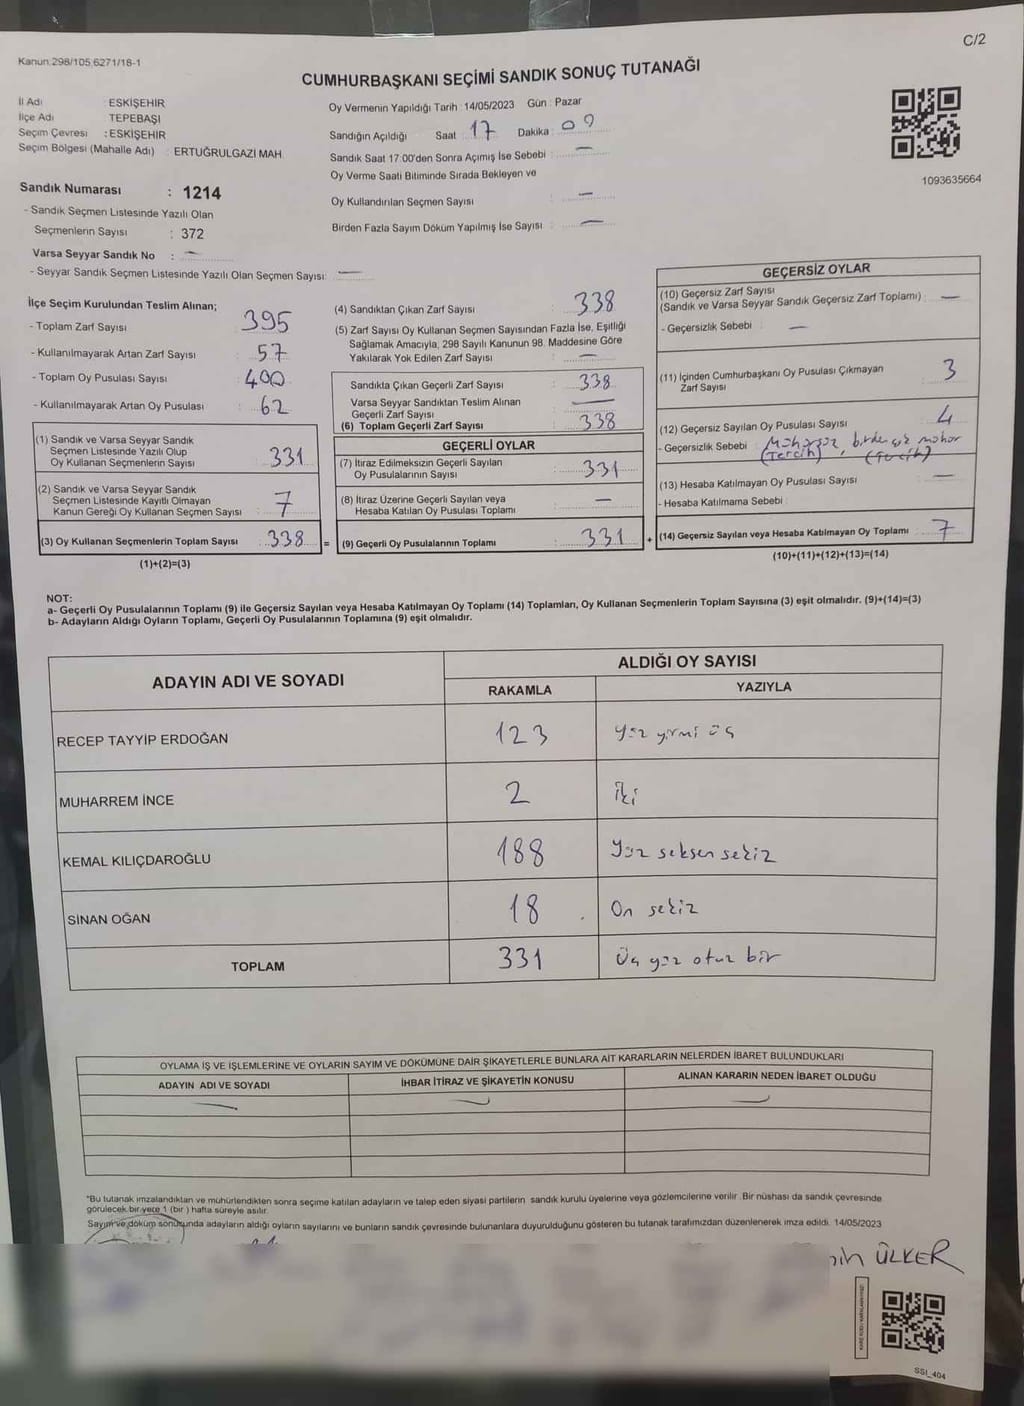 C/2
Kanun.298/105,6271/18-1
CUMHURBAŞKANI SEÇİMİ SANDIK SONUÇ TUTANAĞI
İl Adı : ESKİŞEHİR
İlçe Adı : TEPEBAŞI
Seçim Çevresi : ESKİŞEHİR
Seçim Bölgesi (Mahalle Adı) : ERTUĞRULGAZİ MAH.
Sandık Numarası : 1214
- Sandık Seçmen Listesinde Yazılı Olan
Seçmenlerin Sayısı : 372
Varsa Seyyar Sandık No : —
- Seyyar Sandık Seçmen Listesinde Yazılı Olan Seçmen Sayısı: —
Oy Vermenin Yapıldığı Tarih : 14/05/2023 Gün : Pazar
Sandığın Açıldığı Saat 17 Dakika : 09
Sandık Saat 17:00'den Sonra Açımış İse Sebebi : —
Oy Verme Saati Bitiminde Sırada Bekleyen ve
Oy Kullandırılan Seçmen Sayısı : —
Birden Fazla Sayım Döküm Yapılmış İse Sayısı : —
1093635664
İlçe Seçim Kurulundan Teslim Alınan;
- Toplam Zarf Sayısı : 395
- Kullanılmayarak Artan Zarf Sayısı : 57
- Toplam Oy Pusulası Sayısı : 400
- Kullanılmayarak Artan Oy Pusulası : 62
(1) Sandık ve Varsa Seyyar Sandık
Seçmen Listesinde Yazılı Olup
Oy Kullanan Seçmenlerin Sayısı : 331
(2) Sandık ve Varsa Seyyar Sandık
Seçmen Listesinde Kayıtlı Olmayan
Kanun Gereği Oy Kullanan Seçmen Sayısı : 7
(3) Oy Kullanan Seçmenlerin Toplam Sayısı : 338
(1)+(2)=(3)
(4) Sandıktan Çıkan Zarf Sayısı : 338
(5) Zarf Sayısı Oy Kullanan Seçmen Sayısından Fazla İse, Eşitliği
Sağlamak Amacıyla, 298 Sayılı Kanunun 98. Maddesine Göre
Yakılarak Yok Edilen Zarf Sayısı : —
Sandıkla Çıkan Geçerli Zarf Sayısı : 338
Varsa Seyyar Sandıktan Teslim Alınan
Geçerli Zarf Sayısı : —
(6) Toplam Geçerli Zarf Sayısı : 338
GEÇERLİ OYLAR
(7) İtiraz Edilmeksizin Geçerli Sayılan
Oy Pusulalarının Sayısı : 331
(8) İtiraz Üzerine Geçerli Sayılan veya
Hesaba Katılan Oy Pusulası Toplamı : —
= (9) Geçerli Oy Pusulalarının Toplamı : 331
GEÇERSİZ OYLAR
(10) Geçersiz Zarf Sayısı
(Sandık ve Varsa Seyyar Sandık Geçersiz Zarf Toplamı) : —
- Geçersizlik Sebebi : —
(11) İçinden Cumhurbaşkanı Oy Pusulası Çıkmayan
Zarf Sayısı : 3
(12) Geçersiz Sayılan Oy Pusulası Sayısı : 4
- Geçersizlik Sebebi : Mühürsüz, birden çok mühür
(Tercih) (Tercih)
(13) Hesaba Katılmayan Oy Pusulası Sayısı : —
- Hesaba Katılmama Sebebi :
+ (14) Geçersiz Sayılan veya Hesaba Katılmayan Oy Toplamı : 7
(10)+(11)+(12)+(13)=(14)
NOT:
a- Geçerli Oy Pusulalarının Toplamı (9) ile Geçersiz Sayılan veya Hesaba Katılmayan Oy Toplamı (14) Toplamları, Oy Kullanan Seçmenlerin Toplam Sayısına (3) eşit olmalıdır. (9)+(14)=(3)
b- Adayların Aldığı Oyların Toplamı, Geçerli Oy Pusulalarının Toplamına (9) eşit olmalıdır.
ADAYIN ADI VE SOYADI
ALDIĞI OY SAYISI
RAKAMLA YAZIYLA
RECEP TAYYİP ERDOĞAN 123 Yüz yirmi üç
MUHARREM İNCE 2 İki
KEMAL KILIÇDAROĞLU 188 Yüz seksen sekiz
SİNAN OĞAN 18 On sekiz
TOPLAM 331 Üç yüz otuz bir
OYLAMA İŞ VE İŞLEMLERİNE VE OYLARIN SAYIM VE DÖKÜMÜNE DAİR ŞİKAYETLERLE BUNLARA AİT KARARLARIN NELERDEN İBARET BULUNDUKLARI
ADAYIN ADI VE SOYADI İHBAR İTİRAZ VE ŞİKAYETİN KONUSU ALINAN KARARIN NEDEN İBARET OLDUĞU
— — —
*Bu tutanak imzalandıktan ve mühürlendikten sonra seçime katılan adayların ve talep eden siyasi partilerin sandık kurulu üyelerine veya gözlemcilerine verilir. Bir nüshası da sandık çevresinde
görülecek bir yere 1 (bir ) hafta süreyle asılır.
Sayım ve döküm sonusunda adayların aldığı oyların sayılarını ve bunların sandık çevresinde bulunanlara duyurulduğunu gösteren bu tutanak tarafımızdan düzenlenerek imza edildi. 14/05/2023
ÜLKER
SSI_404